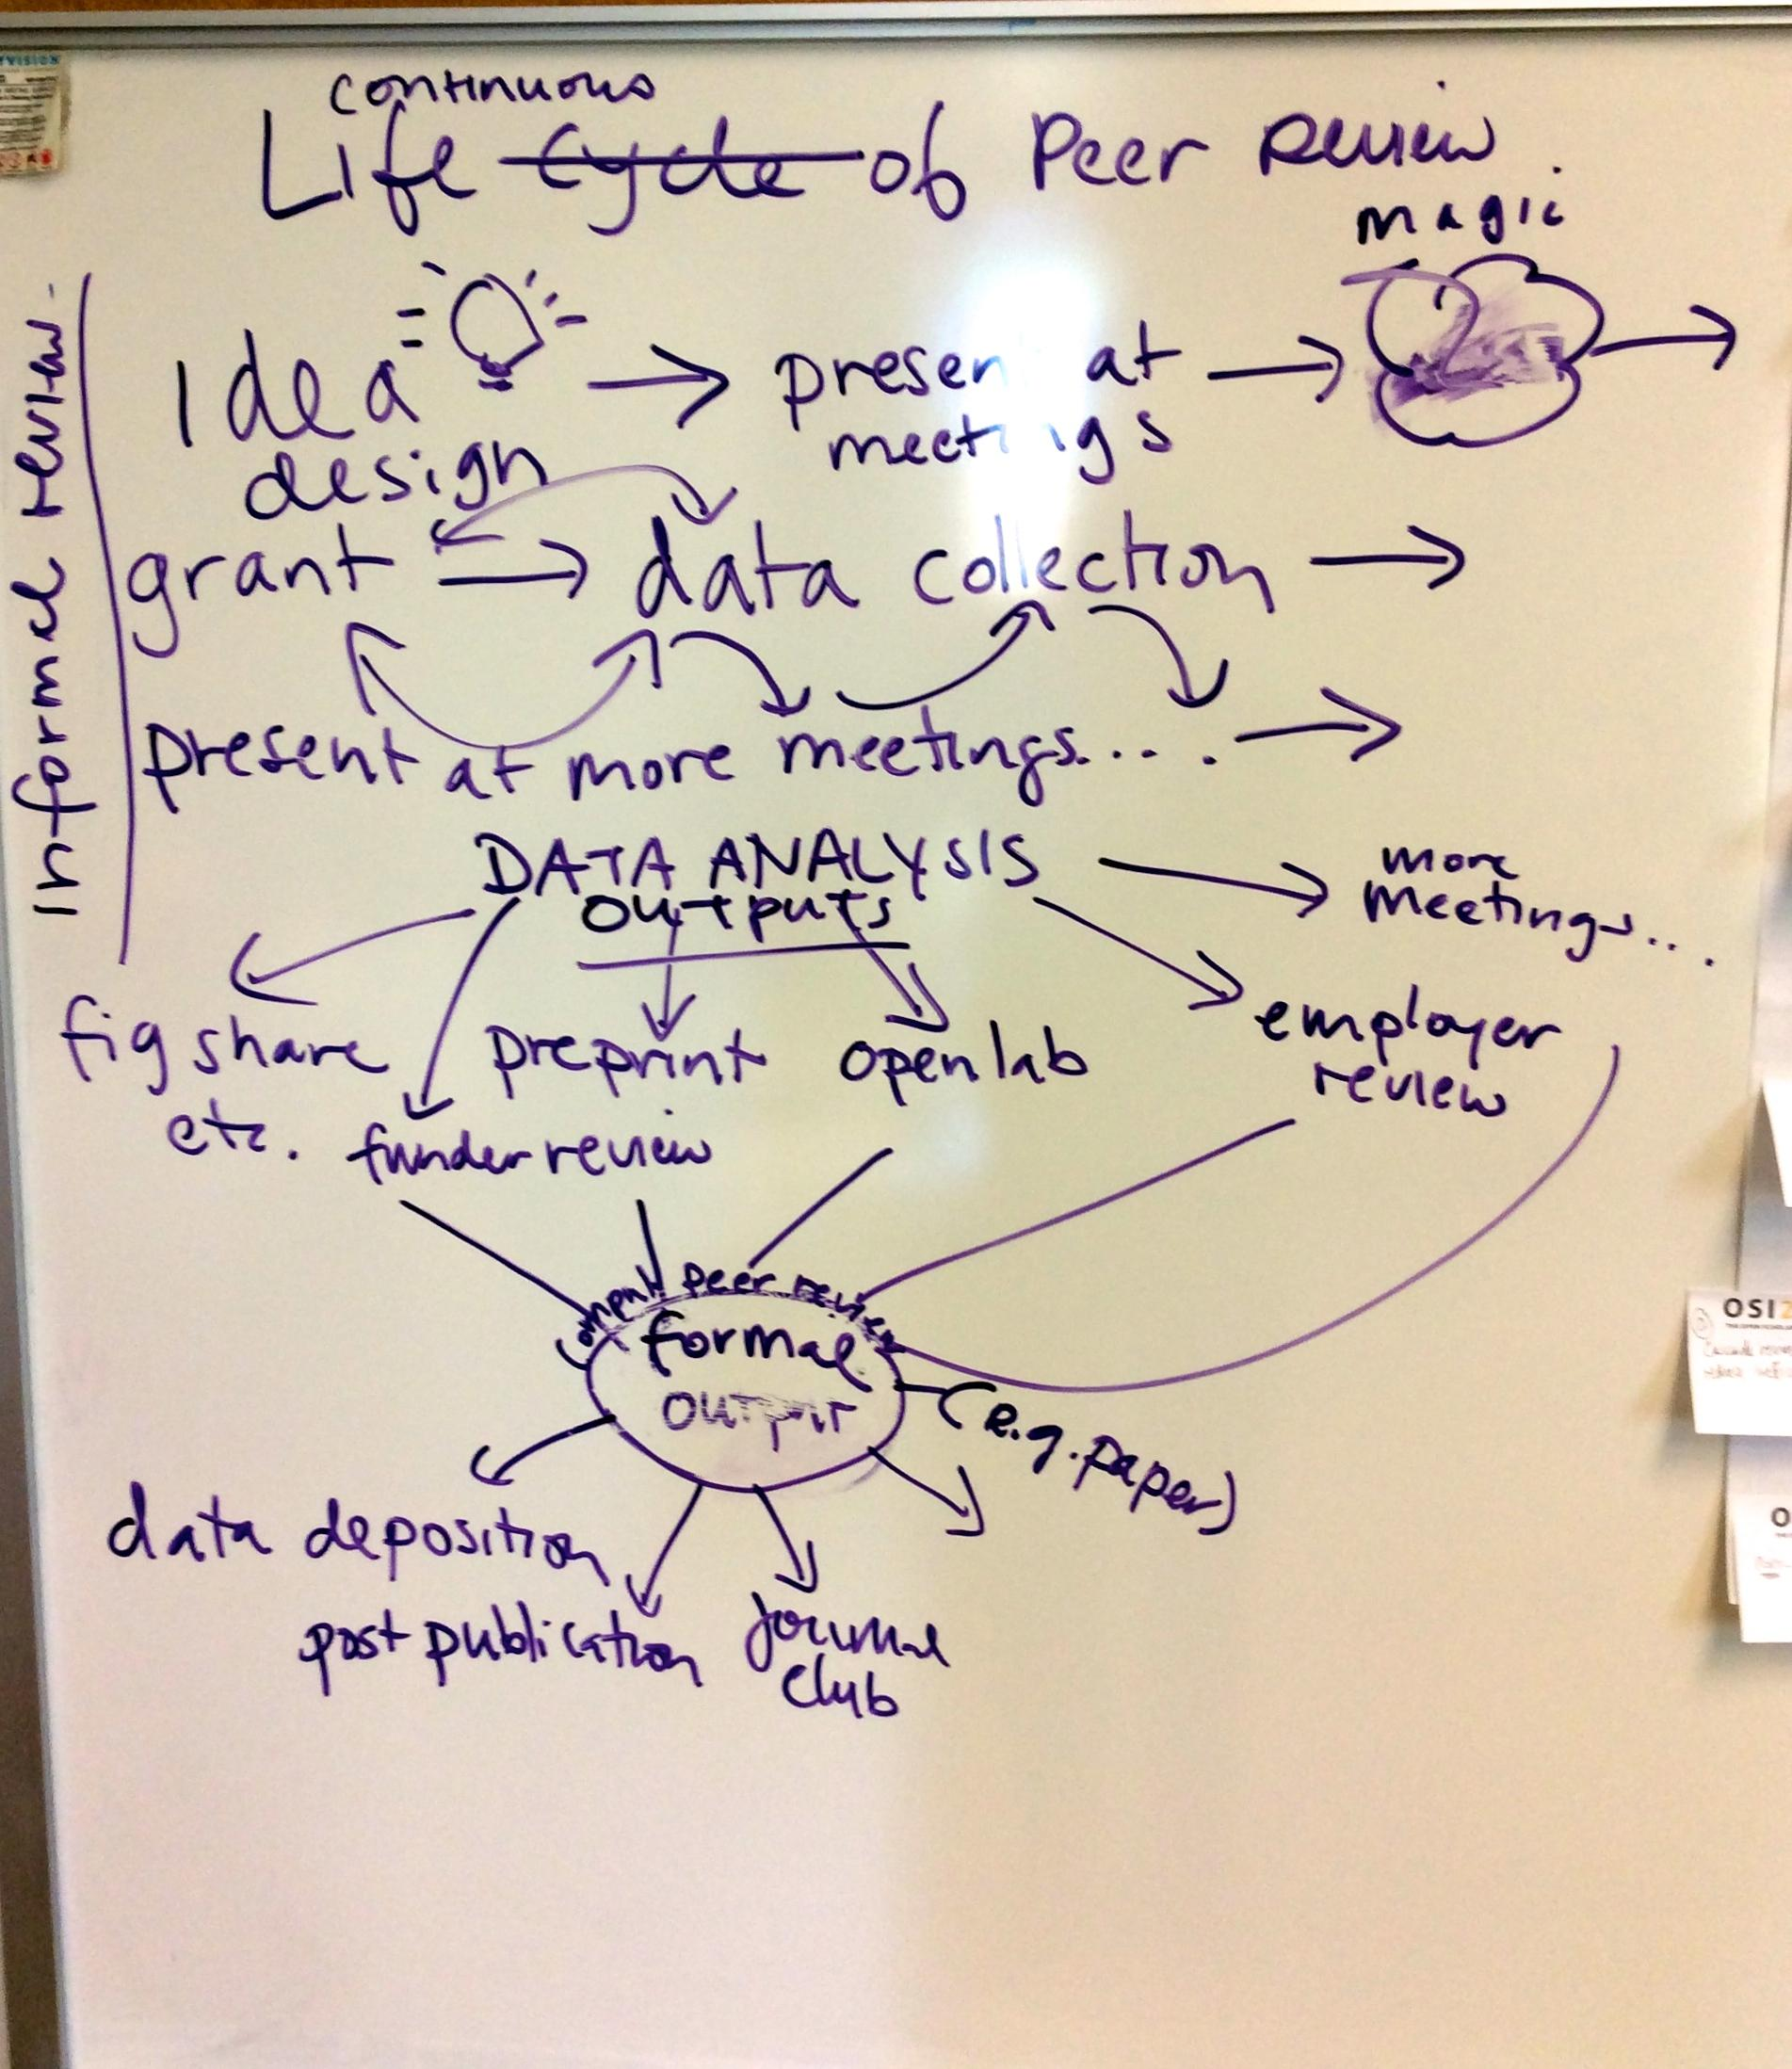 continuous
Life Cycle of Peer Review
magic
Informal review.
Idea
present at
meetings
design
grant
data collection
present at more meetings....
DATA ANALYSIS
more
meetings...
outputs
employer
review
figshare
etc.
preprint
openlab
funder review
peer review
formal
output
(e.g. paper)
data deposition
post publication
journal
club
OSI2